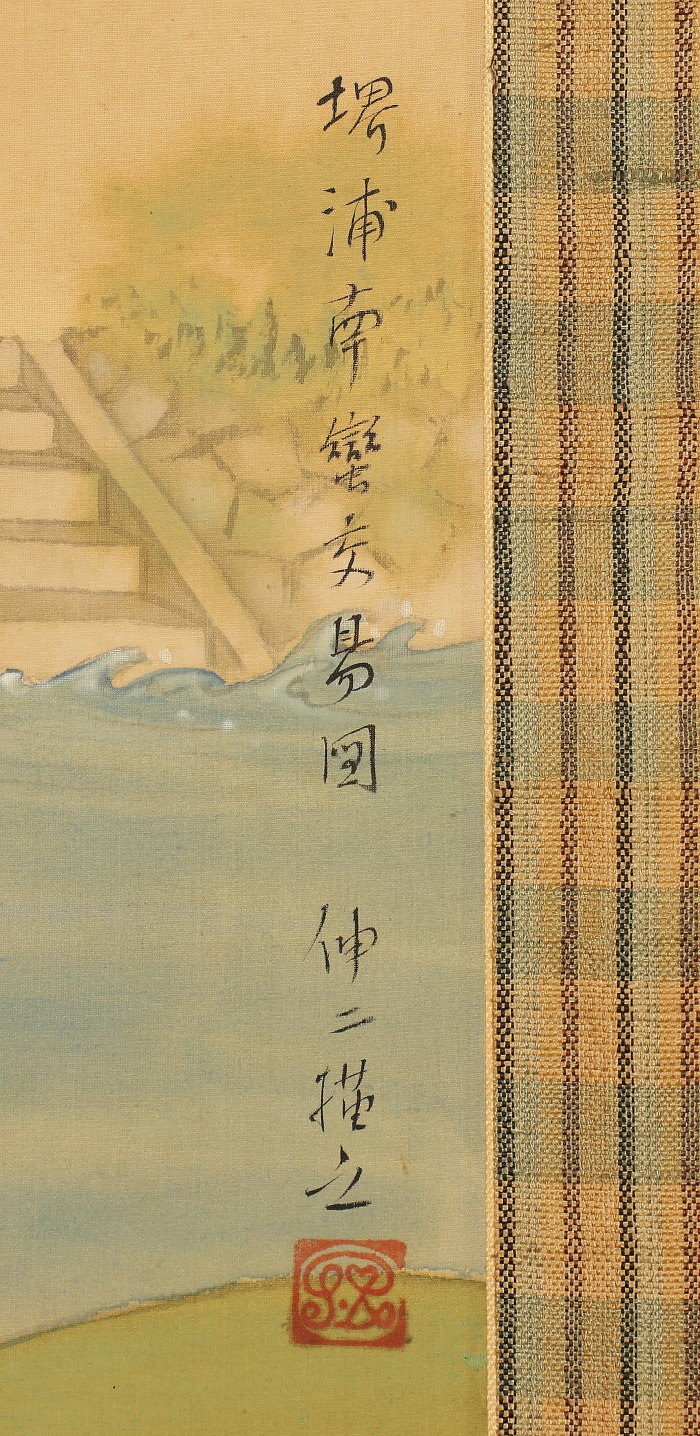 堺浦南蛮交易図 伸二描之